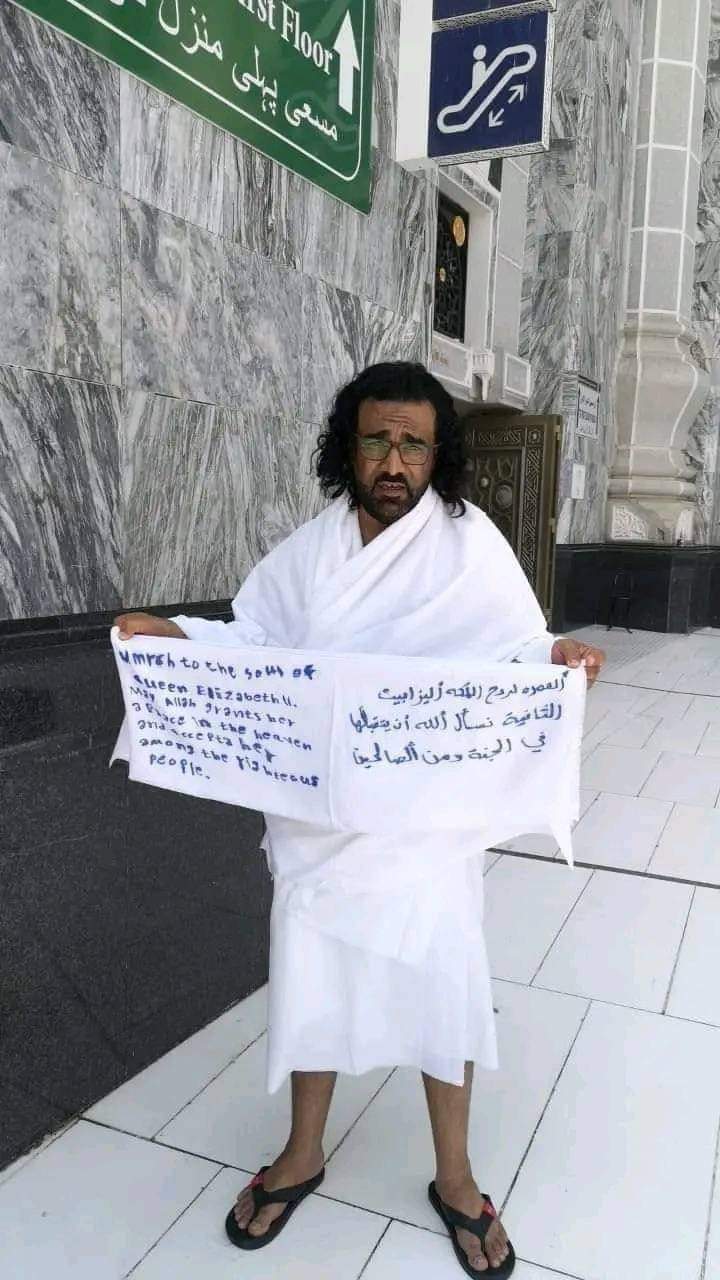 rst Floor
مسعى پہلی منزل
Umrah to the soul of
Queen Elizabeth II.
May Allah grants her
a place in the heaven
and accepta her
among the righteous
people.
العمره لروح الملكه أليزابيت
الثانية نسأل الله أن يتقبلها
في الجنة ومن الصالحين